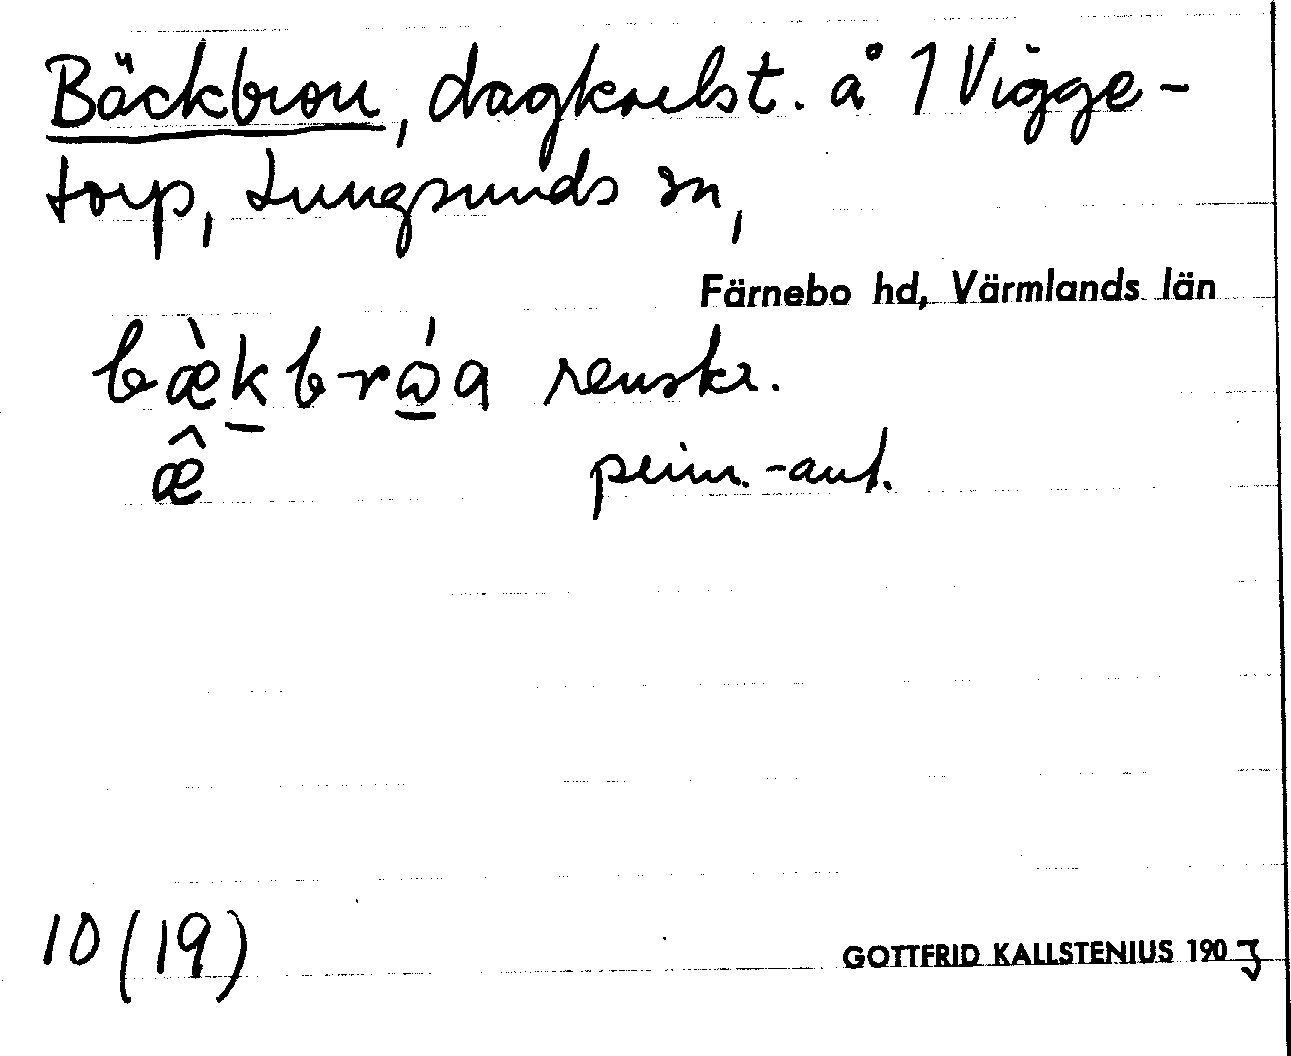 Bäckbron, dagkarlst. å 1 Vigge-
torp, Lungsunds sn,
Färnebo hd, Värmlands län
bæ̀kbrώa renskr.
æ̂ prim.-ant.
10 (19)
GOTTFRID KALLSTENIUS 1903